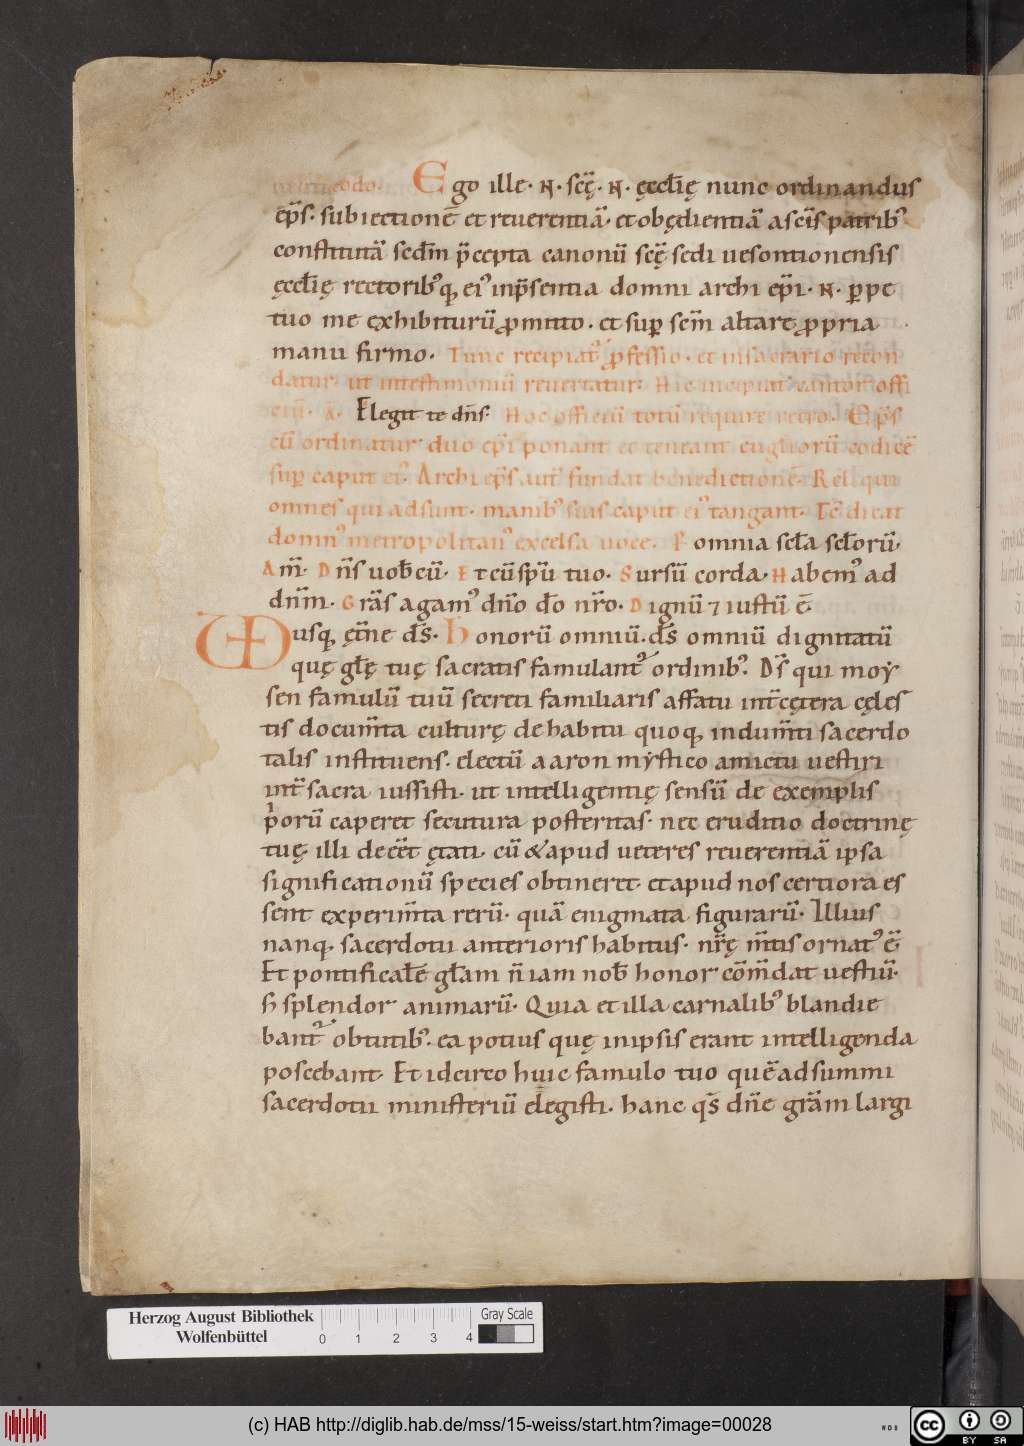 modo. Ego ille · N · scę̄ · N · ęcclię nunc ordinandus
ep̄s · subiectionē et reuerentiā · et obędientiā a scīs patrib;
constitutā sec̄dm p̄cepta canonū scę̄ sedi uesontionensis
ęcclię rectorib; q; ei' inp̄sentia domni archi ep̄i · N · ꝑpe
tuo me exhibiturū ꝓmitto · et suꝑ sc̄m altare ꝓpria
manu firmo. Tunc recipiat̄ ꝓfessio · et insacrario recon
datur · ut intestimoniū reuertatur · Hic incipiat cantor offi
ciū · A · Elegit te dn̄s · Hoc officiū totū require retro. Ep̄s
cū ordinatur duo ep̄i ponant et teneant euglioru̅ codicē
suꝑ caput ei' · Archi ep̄s aut̄ fundat benedictionē · Reliqui
omnes qui adsunt · manib; suis caput ei' tangant · Tc̄ dicat
domn' metropolitan' excelsa uoce · P omnia scl̄a scl̄orū ·
Am̄ · Dn̄s uob̄cū · Et cū sp̄u tuo · Sursū corda · Habem' ad
dn̄m · Gr̄as agam' dn̄o d̄o nr̄o · Dignū ⁊ iustū ē̄ ·
VD usq; ęt̄ne d̄s · Honorū omniū d̄s omniū dignitatū
quę gl̄ę tuę sacratis famulant̄ ordinib; · D̄s qui moẏ
sen famulū tuū secreti familiaris affatu int̄ cętera cęles
tis docum̄ta culturę de habitu quoq; indum̄ti sacerdo
talis instituens · electū aaron mẏstico amictu uestiri
int̄ sacra iussisti · ut intelligentię sensū de exemplis
p̍orū caperet secutura posteritas · nec eruditio doctrinę
tuę · illi deēet ętati · cū & apud ueteres reuerentiā ipsa
significationū species obtineret · et apud nos certiora es
sent experim̄ta rerū · quā enigmata figurarū · Illius
nanq; sacerdotii anterioris habitus · nr̄ę m̄tis ornat' ē̄
Et pontificalē gl̄am n̄ iam nob̄ honor cōm̄dat uestiū ·
sꝫ splendor animarū · Quia et illa carnalib; blandie
bant̄ obtutib; · ea potius quę inipsis erant intelligenda
poscebant · Et idcirco huic famulo tuo quē ad summi
sacerdotii ministeriū elegisti · hanc qs̄ dn̄e gr̄am largi
Herzog August Bibliothek
Wolfenbüttel
0 1 2 3 4
Gray Scale
(c) HAB http://diglib.hab.de/mss/15-weiss/start.htm?image=00028
cc BY SA